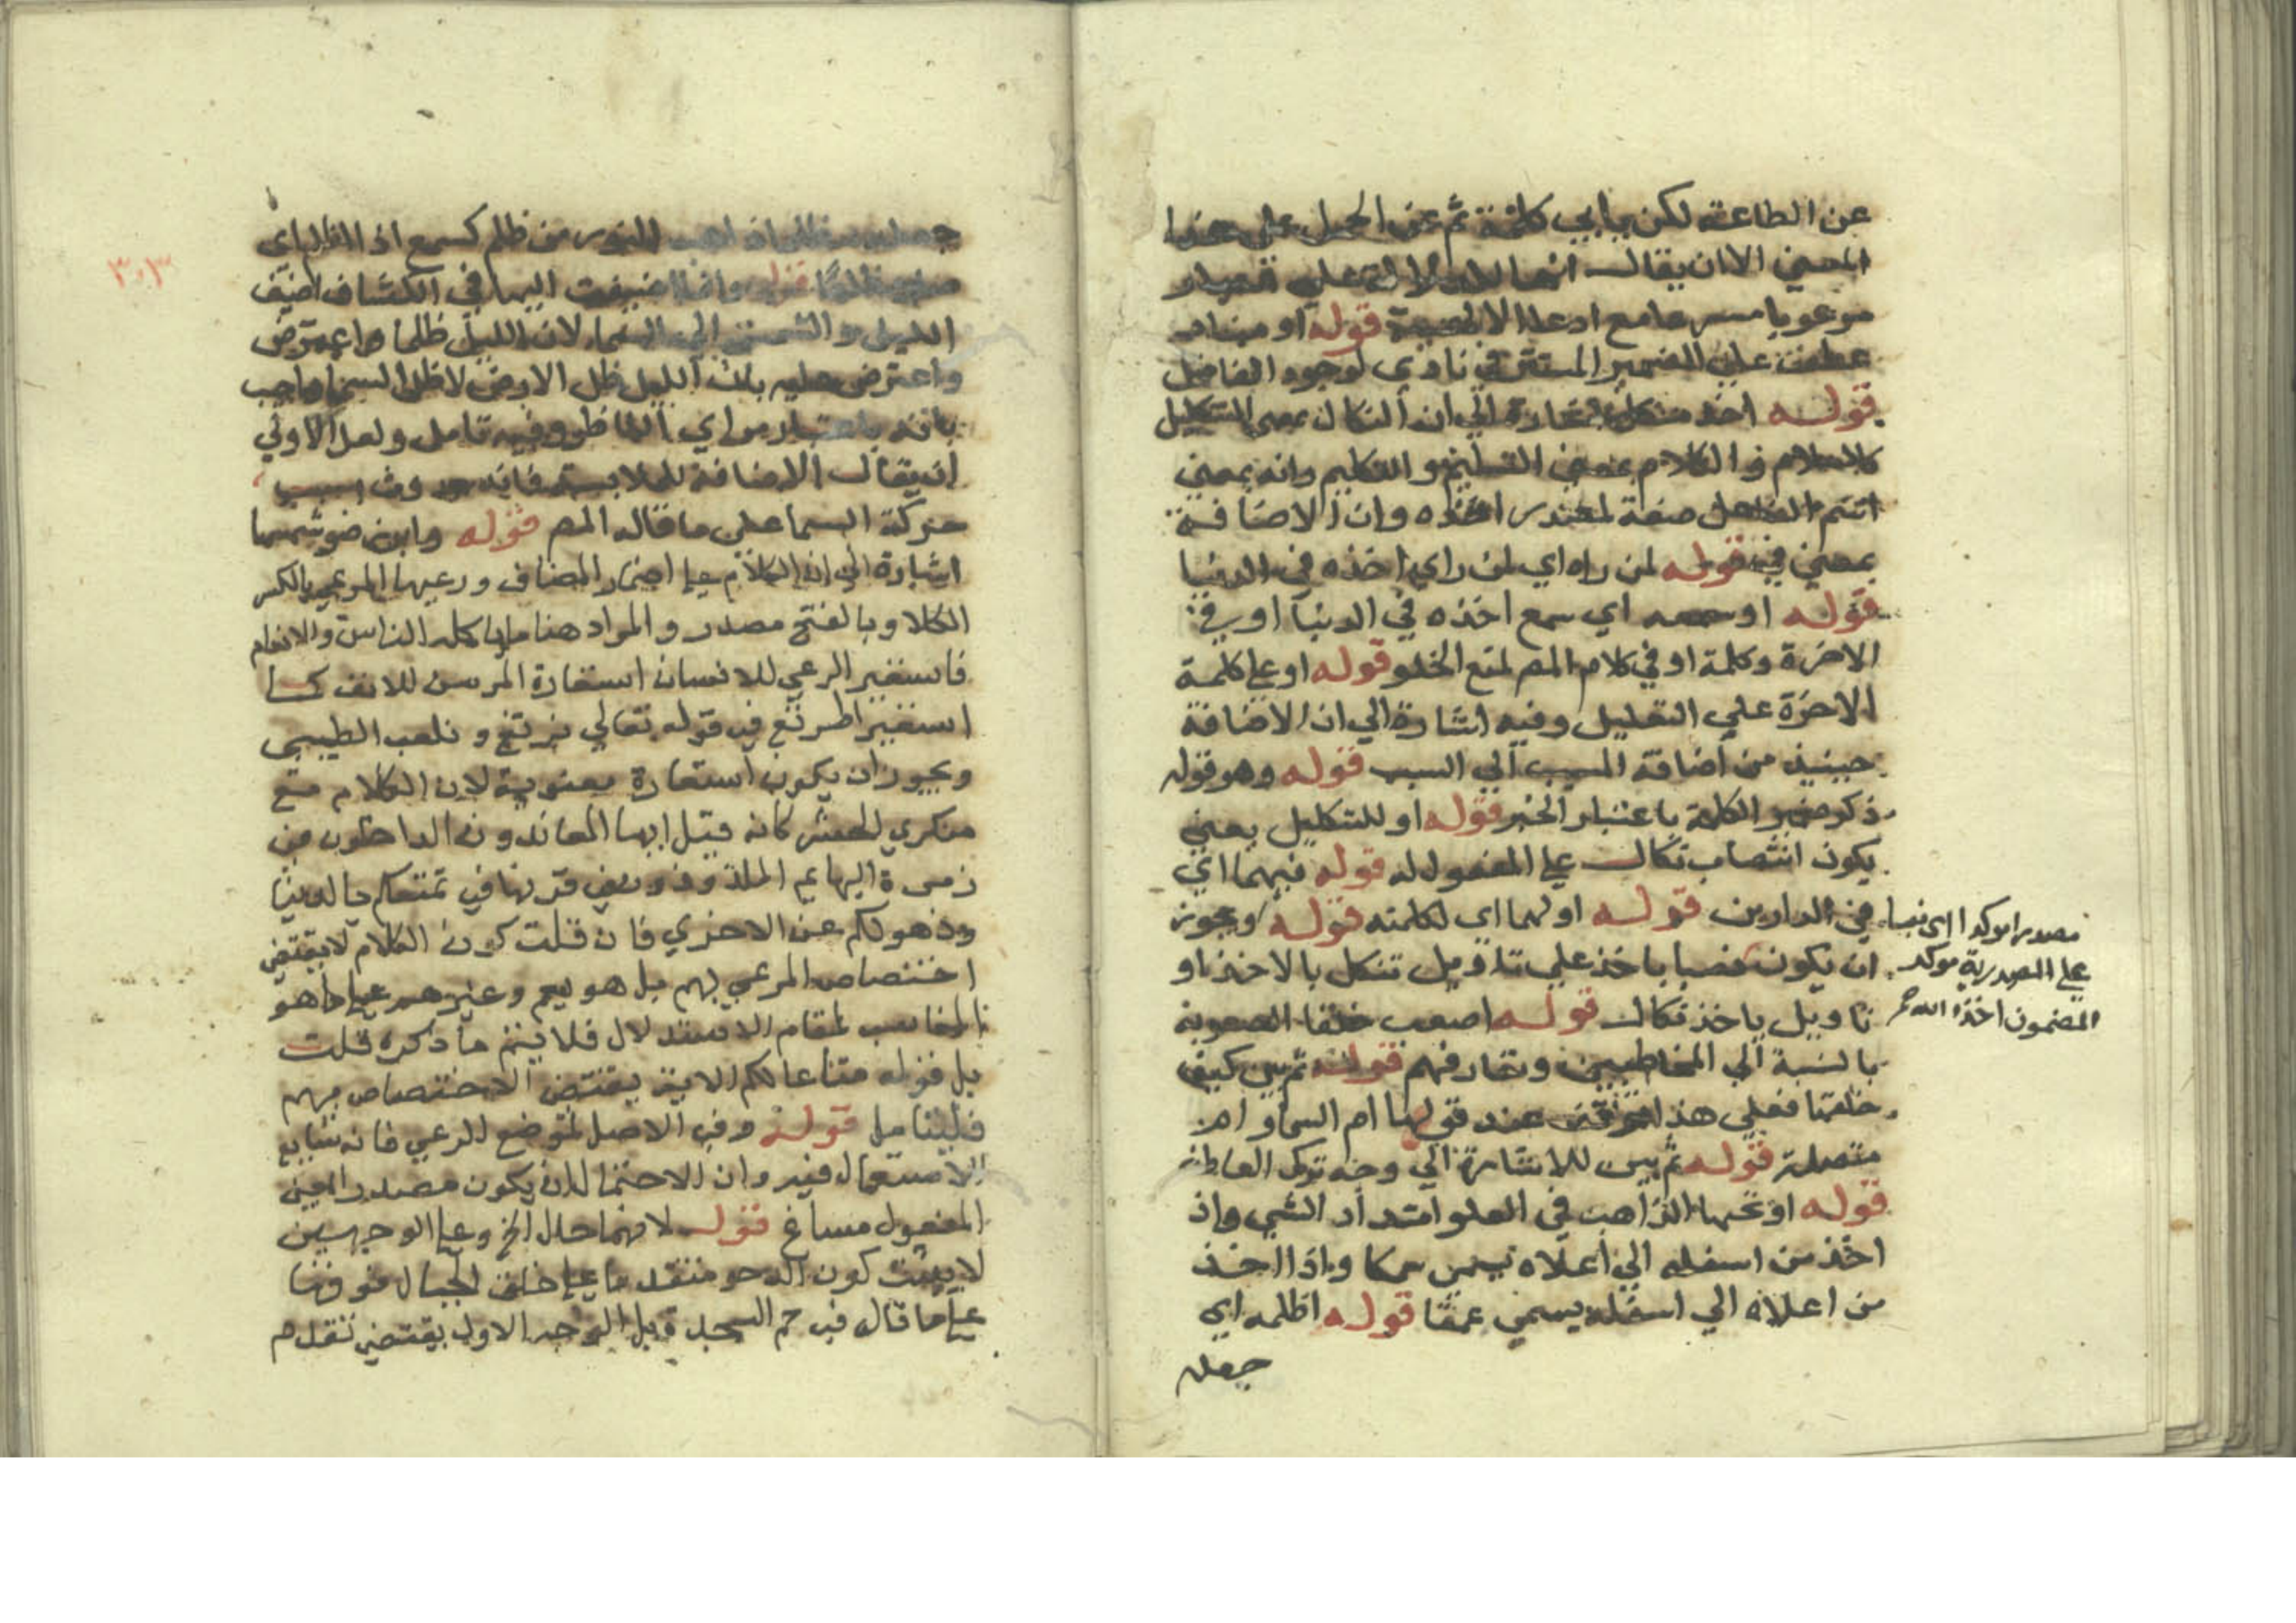 عن الطاعة لكن يأبى كلمة ثم عن الحمل على هذا
المعنى الا ان يقال انها للدلالة على
مع ادعا الالوهية قوله او
عطف على الضمير المستتر في نادى لوجود الفاصل
قوله اخذ منكلا اشارة الي ان النكال بمعنى التنكيل
كالسلام والكلام بمعنى التسليم والتكليم وانه بمعنى
اسم الفاعل صفة لمصدر اخذه وان الاضافة
بمعنى في قوله لمن راه اي لمن راي اخذه في الدنيا
قوله او سمعه اي سمع اخذه في الدنيا او في
الاخرة وكلمة او في كلام المصـ لمنع الخلو قوله او على كلمة
الاخرة علي التعليل وفيه اشارة الي ان الاضافة
حينيذ من اضافة المسبب الي السبب قوله وهو قوله
ذكر ضمير الكلمة باعتبار الخبر قوله او للتنكيل يعني
يكون انتصاب نكال على المفعول له قوله فيهما اي
في الدارين قوله او لهما اي لكلمته قوله ويجوز
ان يكون نصبا باخذ علي تاويل تنكل بالاخذ او
تاويل ياخذ نكال قوله اصعب خلقا الصعوبة
بالنسبة الي المخاطبين وتعارفهم قوله ثم بين كيف
خلقها فعلي هذا عند قوله ام السما وام
متصلة قوله ثم بين للاشارة الي وجه ترك العاطف
قوله او ثخنها الذاهب في العلو امتداد الشي واذ
اخذ من اسفله الي اعلاه يسمى سمكا واذا اخذ
من اعلاه الي اسفله يسمى عمقا قوله اظلمه اي
جعله
مصدرا موكدا اي نصبا
على المصدرية موكد
المضمون اخذه الله
٣٠٣
جعله مظلما من ظلم كسمع اذ الظلم اي
صار مظلما قوله وانما اضيفت اليها في الكشاف اضيف
الليل والشمس الي السما لان الليل ظلها واعترض
واعترض عليه بان الليل ظل الارض لا ظل السما واجيب
بانه باعتبار مراي الناظر وفيه تامل ولعل الاولي
ان يقال الاضافة للملابسة فانه حدوث بسبب
حركة السما على ما قاله المصـ قوله وابرز ضو شمسها
اشارة الي ان الكلام على اضمار المضاف ورعيها المرعي بالكسر
الكلا وبالفتح مصدر والمراد هنا ما ياكله الناس والانعام
فاستعير الرعي للانسان استعارة المرسن للانف كما
استعير الرتع في قوله تعالي نرتع ونلعب الطيبي
ويجوز ان يكون استعارة معنوية لان الكلام مع
منكري الحشر كانه قيل ايها المعاندون الداخلون في
زمرة البهايم الملذوذون في قرنها في تمتعكم بالدنيا
وذهولكم عن الاخري فان قلت كون الكلام لا يقتضي
اختصاص المرعي بهم بل هو يعم وغيرهم على ما هو
المناسب لمقام الاستدلال فلا يتم ما ذكره قلت
بل قوله متاعا لكم الاية يقتضي الاختصاص بهم
فليتامل قوله وفي الاصل لموضع الرعي فانه شايع
الاستعمال فيه وان الاحتمال لان يكون مصدرا بمعنى
المفعول مساغ قوله لانهما حال الخ وعلى الوجهين
لا يثبت كون الدحو متقدما على خلق الجبال فوقها
على ما قال في حم السجدة بل الوجه الاول يقتضي تقدم